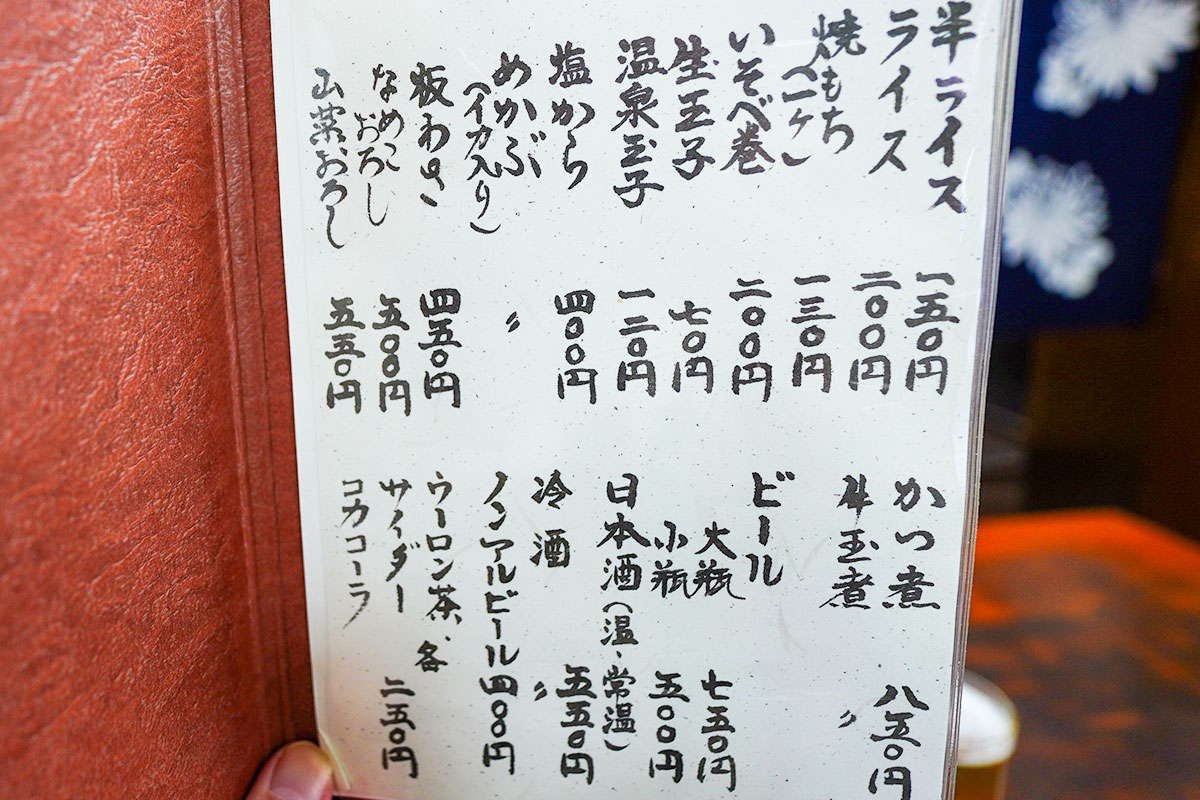 半ライス 一五〇円
ライス 二〇〇円
焼もち(一ヶ) 一三〇円
いそべ巻 二〇〇円
生玉子 七〇円
温泉玉子 一二〇円
塩から 四〇〇円
めかぶ 〃
(イカ入り)
板わさ 四五〇円
なめこおろし 五〇〇円
山菜おろし 五五〇円
かつ煮 八五〇円
牛玉煮 〃
ビール
大瓶 七五〇円
小瓶 五〇〇円
日本酒(温・常温) 五五〇円
冷酒 〃
ノンアルビール 四〇〇円
ウーロン茶、各
サイダー 二五〇円
コカコーラ